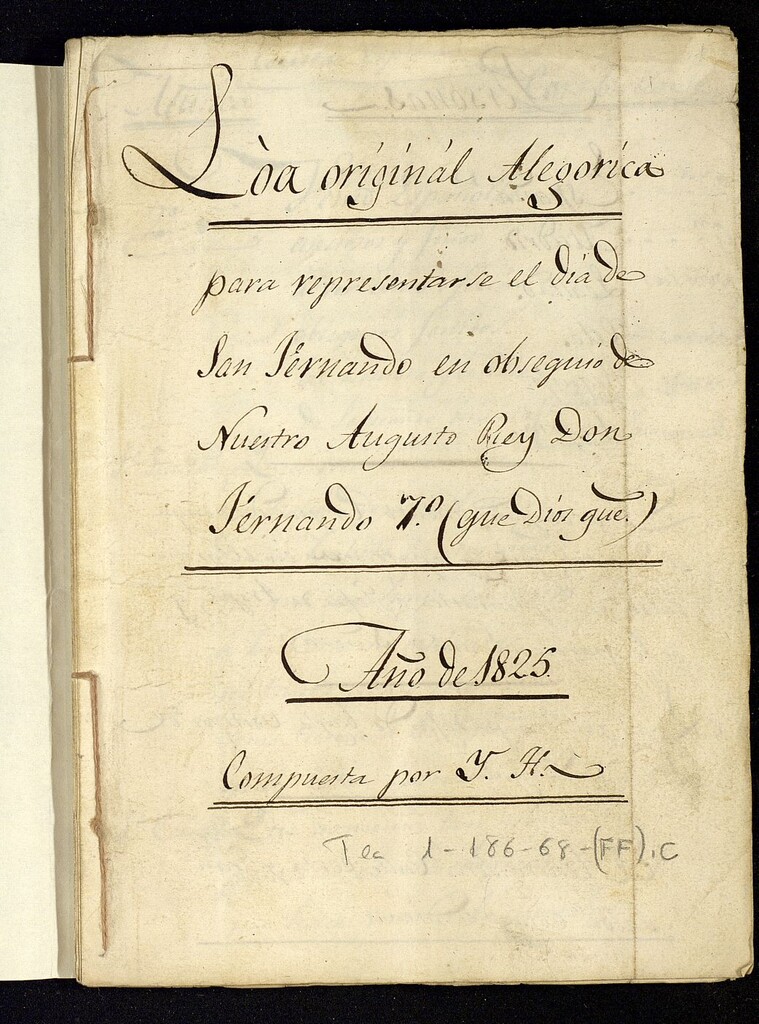 Lòa originál Alegorica
para representarse el dia de
San Fernando en obsequio de
Nuestro Augusto Rey Don
Fernando 7.º (que Dios gue.)
Año de 1825.
Compuesta por Y. H.
Tea 1-186-68-(FF).C
Personas